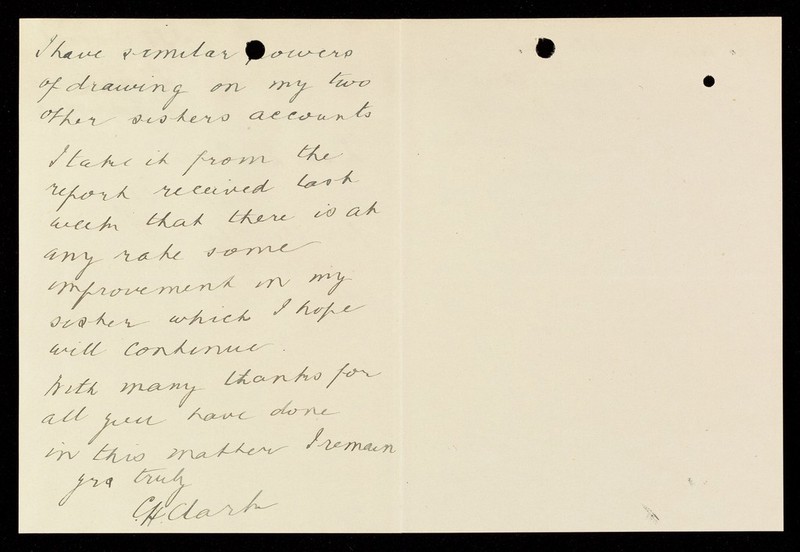 I have similar powers
of drawing on my two
other sisters accounts
I take it from the
report received last
week that there is at
any rate some
improvement in my
sister which I hope
will continue.
With many thanks for
all you have done
in this matter I remain
yrs truly
C.H. Clark